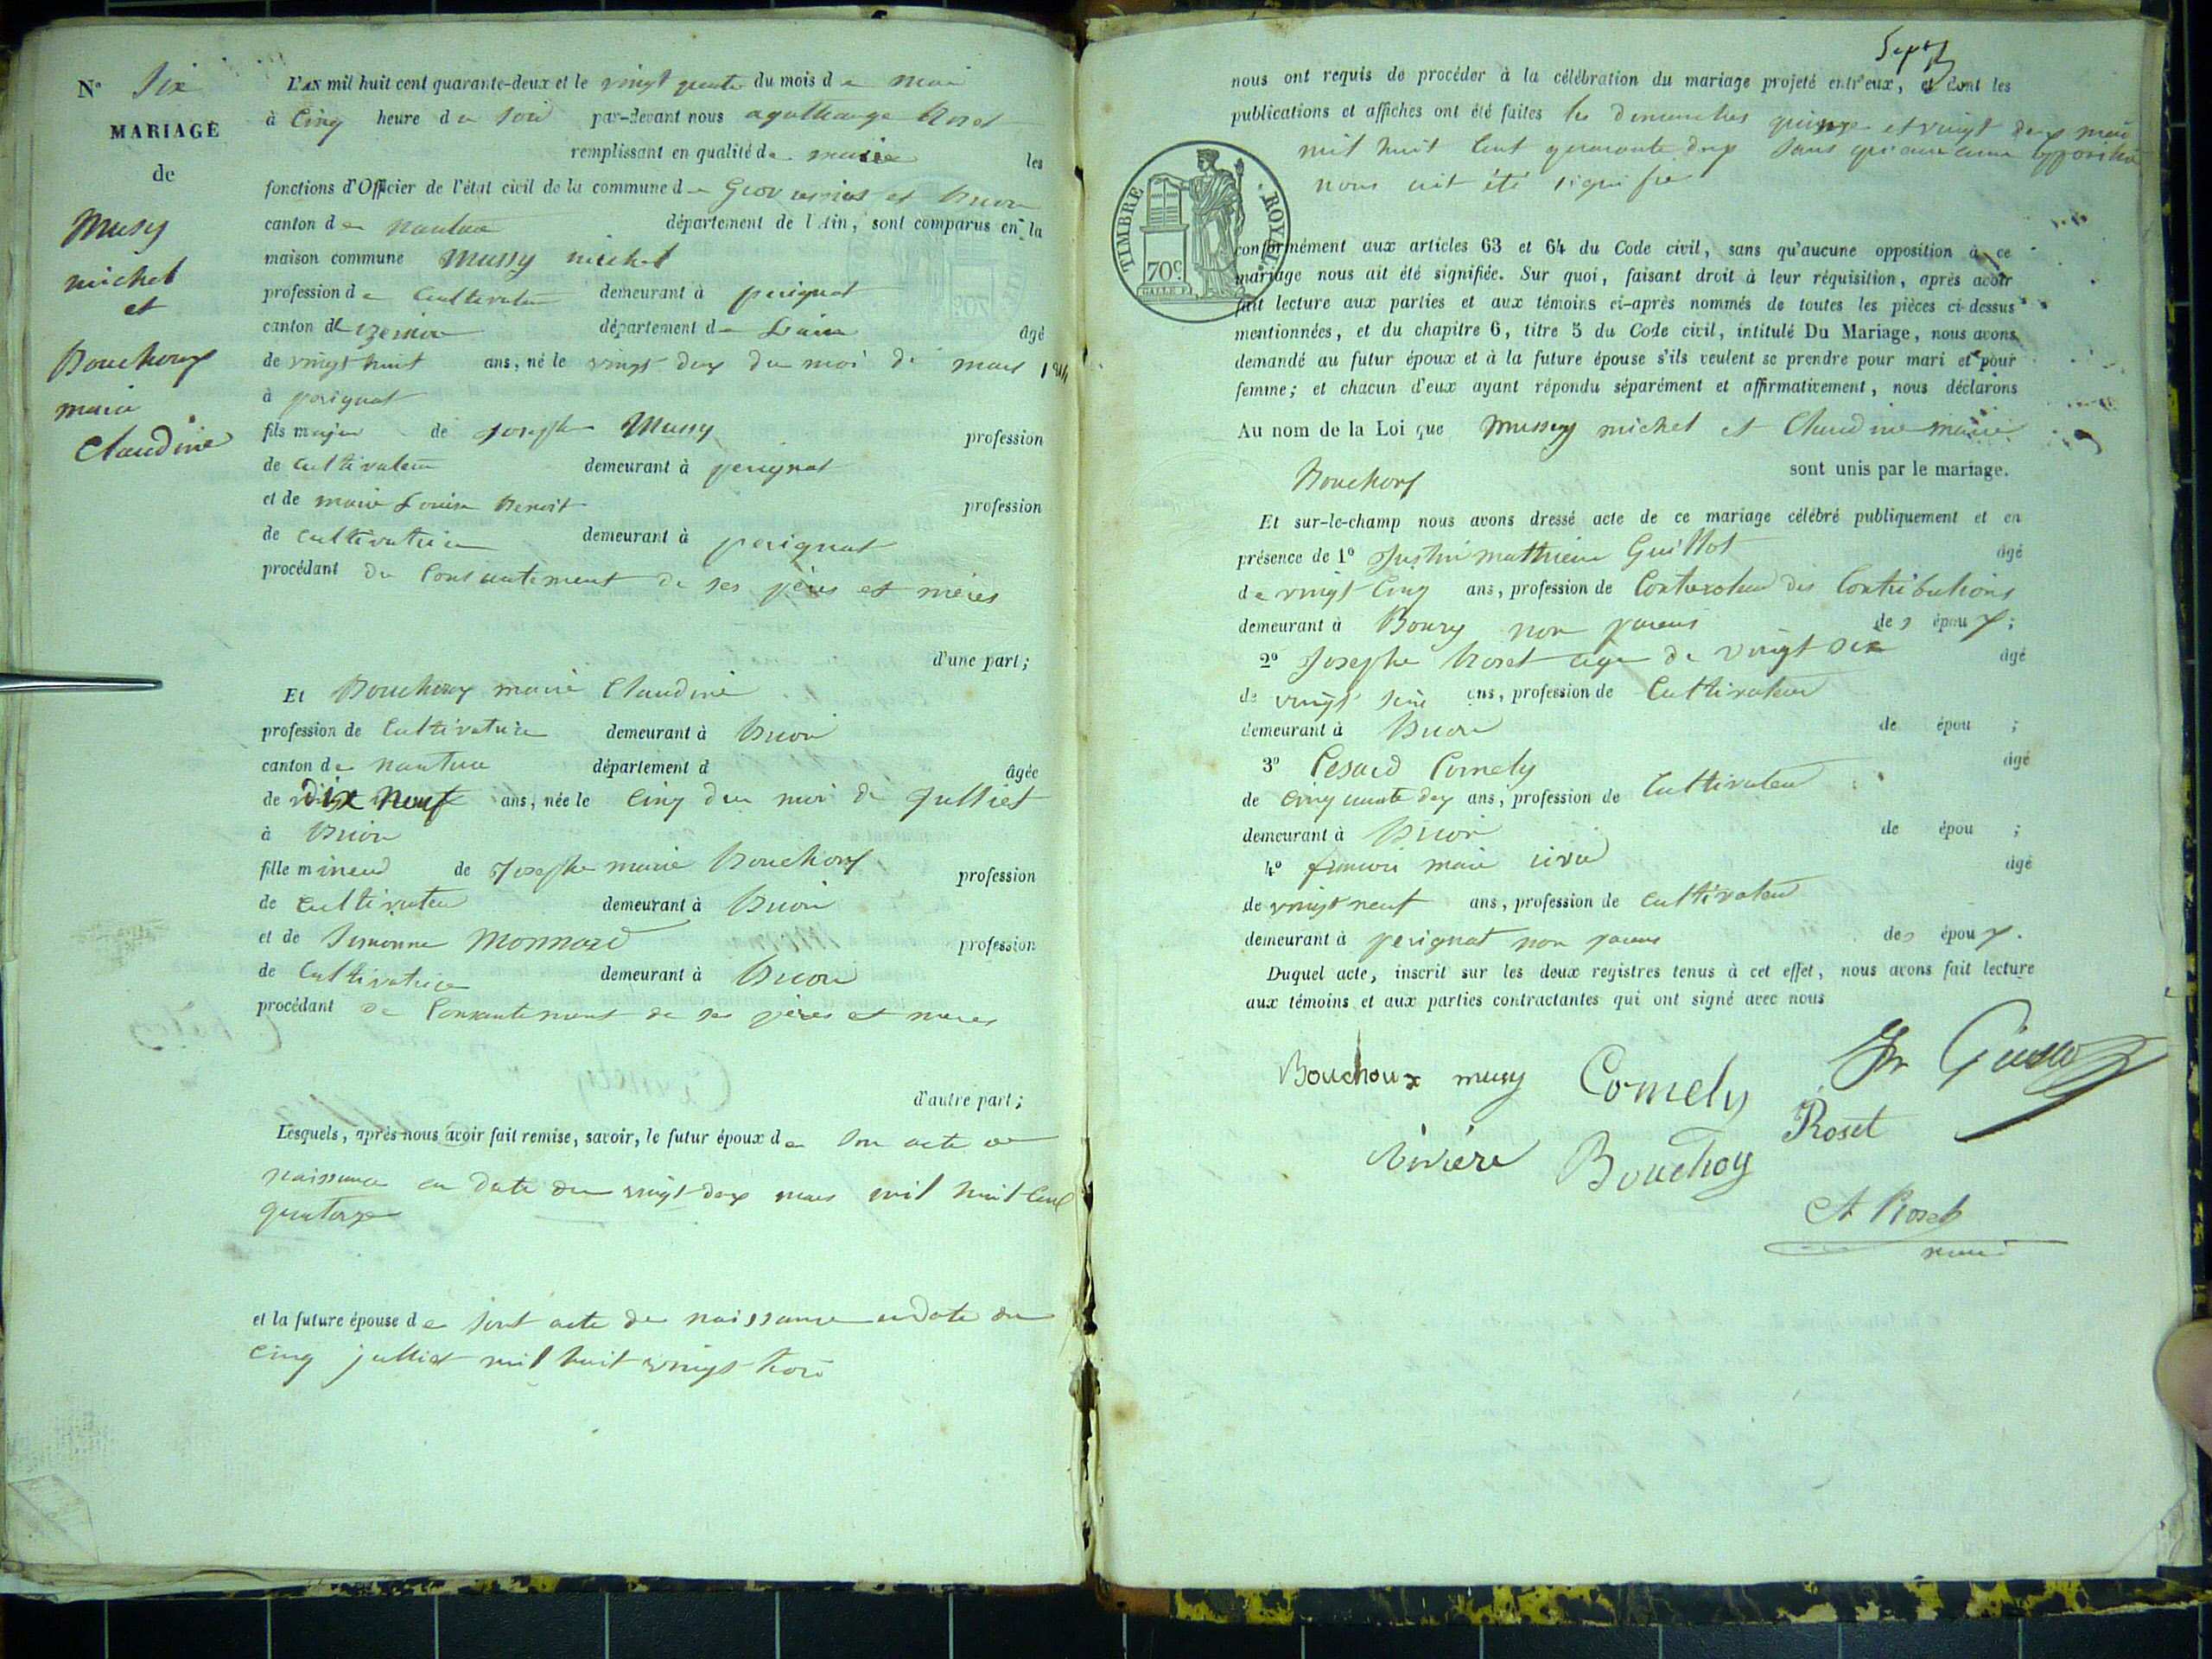 N° Six
MARIAGE
de
Mussy
michel
et
Bouchoux
marie
Claudine
L'AN mil huit cent quarante-deux et le vingt quatre du mois de mai
à Cinq heure du Soir par-devant nous agathange Roset
remplissant en qualité de maire les
fonctions d'Officier de l'état civil de la commune de et Brion
canton de nantua département de l'Ain, sont comparus en la
maison commune Mussy michel
profession de Cultivateur demeurant à perignat
canton d izernore département de L'ain âgé
de vingt huit ans, né le vingt deux du moi de mars 1814
à perignat
fils majeur de Joseph Mussy profession
de Cultivateur demeurant à perignat
et de marie Louise Benoit profession
de cultivatrice demeurant à perignat
procédant du Consantement de ses pères et mères
d'une part;
Et Bouchoux marie Claudine
profession de Cultivatrice demeurant à Brion
canton de nantua département d âgée
de Dix neuf ans, née le Cinq du moi de Julliet
à Brion
fille mineur de Joseph marie Bouchoux profession
de Cultivateur demeurant à Brion
et de Simonne Monnard profession
de Cultivatrice demeurant à Brion
procédant de Consantement de ses pères et meres
d'autre part;
Lesquels, après nous avoir fait remise, savoir, le futur époux de Son acte de
naissance en date du vingt deux mars mil huit Cent
quatorze
et la future épouse de Sont acte de naissance en date du
Cinq julliet mil huit vingt trois
Sept
nous ont requis de procéder à la célébration du mariage projeté entr'eux, et dont les
publications et affiches ont été faites les dimanches quinze et vingt deux mai
mil huit Cent quarante deux Sans qu'aucune opposition
nous ait été signifie
TIMBRE ROYAL
70c
conformément aux articles 63 et 64 du Code civil, sans qu'aucune opposition à ce
mariage nous ait été signifiée. Sur quoi, faisant droit à leur réquisition, après avoir
fait lecture aux parties et aux témoins ci-après nommés de toutes les pièces ci-dessus
mentionnées, et du chapitre 6, titre 5 du Code civil, intitulé Du Mariage, nous avons
demandé au futur époux et à la future épouse s'ils veulent se prendre pour mari et pour
femme; et chacun d'eux ayant répondu séparément et affirmativement, nous déclarons
Au nom de la Loi que Mussy michel et Claudine marie
Bouchoux sont unis par le mariage.
Et sur-le-champ nous avons dressé acte de ce mariage célébré publiquement et en
présence de 1° Justin matthieu Guillot âgé
de vingt Cinq ans, profession de Controleur des Contributions
demeurant à Bourg non parens des époux;
2° Josephe Roset age de vingt six âgé
de vingt ans, profession de Cultivateur
demeurant à Brion de épou ;
3° Cesard Comely âgé
de cinquante deux ans, profession de Cultivateur
demeurant à Brion de épou ;
4° marie âgé
de vingt neuf ans, profession de Cultivateur
demeurant à perignat non parens des époux.
Duquel acte, inscrit sur les deux registres tenus à cet effet, nous avons fait lecture
aux témoins et aux parties contractantes qui ont signé avec nous
Bouchoux musy Comely Guillot
Roset
Rivière Bouchoy
At Roset
maire